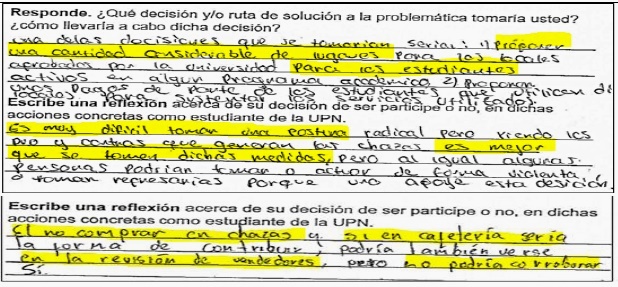 Responde. ¿Qué decisión y/o ruta de solución a la problemática tomaría usted?
¿cómo llevaría a cabo dicha decisión?
una delas docisiones que se tomarian seria: 1) Proponer
una cantidad considerable de lugares para los locales
aprobados por la universidad para los estudiantes
activos en algun programa academico 2) Proponer
unos pagos de parte de los estudiantes que utilicen di
locales para los servicios utilizados.
Escribe una reflexión acerca de su decisión de ser participe o no, en dichas
acciones concretas como estudiante de la UPN.
Es muy dificil tomar una postura radical pero viendo los
pro y contras que generan las chazas es mejor
que se tomen dichas medidas, pero al igual algunas
personas podrian tomar o actuar de forma violenta
o tomar represarias porque uno apoye esta desición.
Escribe una reflexión acerca de su decisión de ser participe o no, en dichas
acciones concretas como estudiante de la UPN.
El no comprar en chazas y si en cafeteria seria
la forma de contribuir, podria también verse
en la revisión de vendedores, pero no podria corroborar
Si.